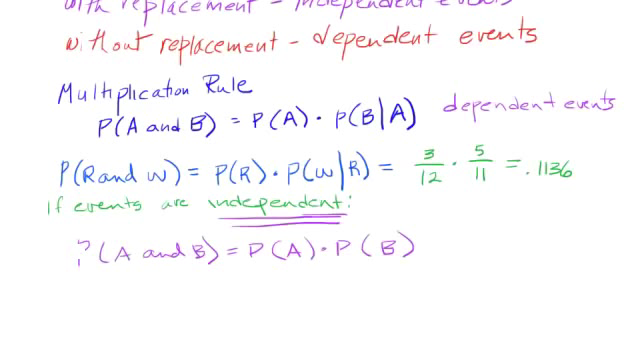 with replacement - independent events
without replacement - dependent events
Multiplication Rule
P(A and B) = P(A) · P(B|A) dependent events
P(R and W) = P(R) · P(W|R) = 3/12 · 5/11 = .1136
if events are independent:
P(A and B) = P(A) · P(B)